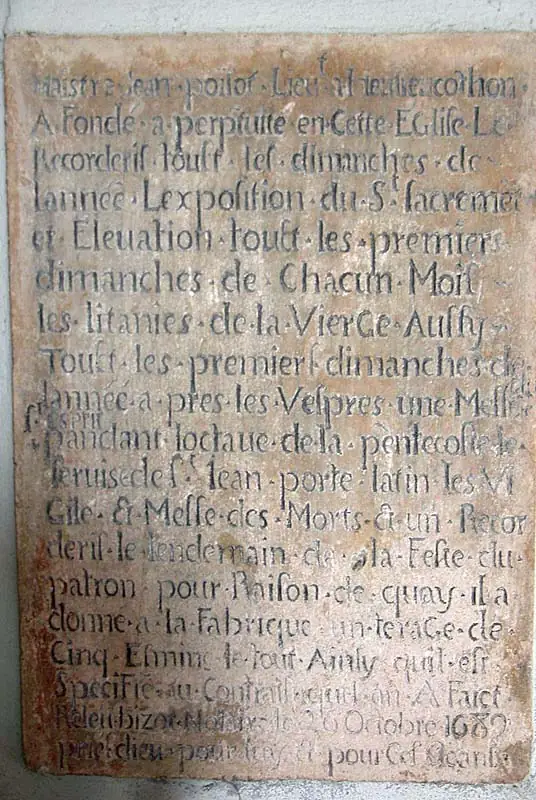 Maistre Jean poisot Lieut
A fonde a perptuite en Cette EGlise Le
Recorderis toust les dimanches de
lanneé Lexposition du St sacremēt
et Eleuation toust les premiers
dimanches de Chacun Mois
les litanies de la VierGe Aussy
Toust les premiers dimanches de
lanneé a pres les Vespres une Messe du
St ESPrit
pandant loctaue de la pentecoste le
seruise de St Jean porte latin les Vi
Gile & Messe des Morts & un Recor
deris le lendemain de la Feste du
patron pour Raison de quoy il a
donne a la Fabrique un teraGe de
Cinq Esmine le tout Ainsy quil est
Specifie au Contrait quil an A Faict
bizot Notaire le 26 Octobre 1689
prie dieu pour luy & pour Ces